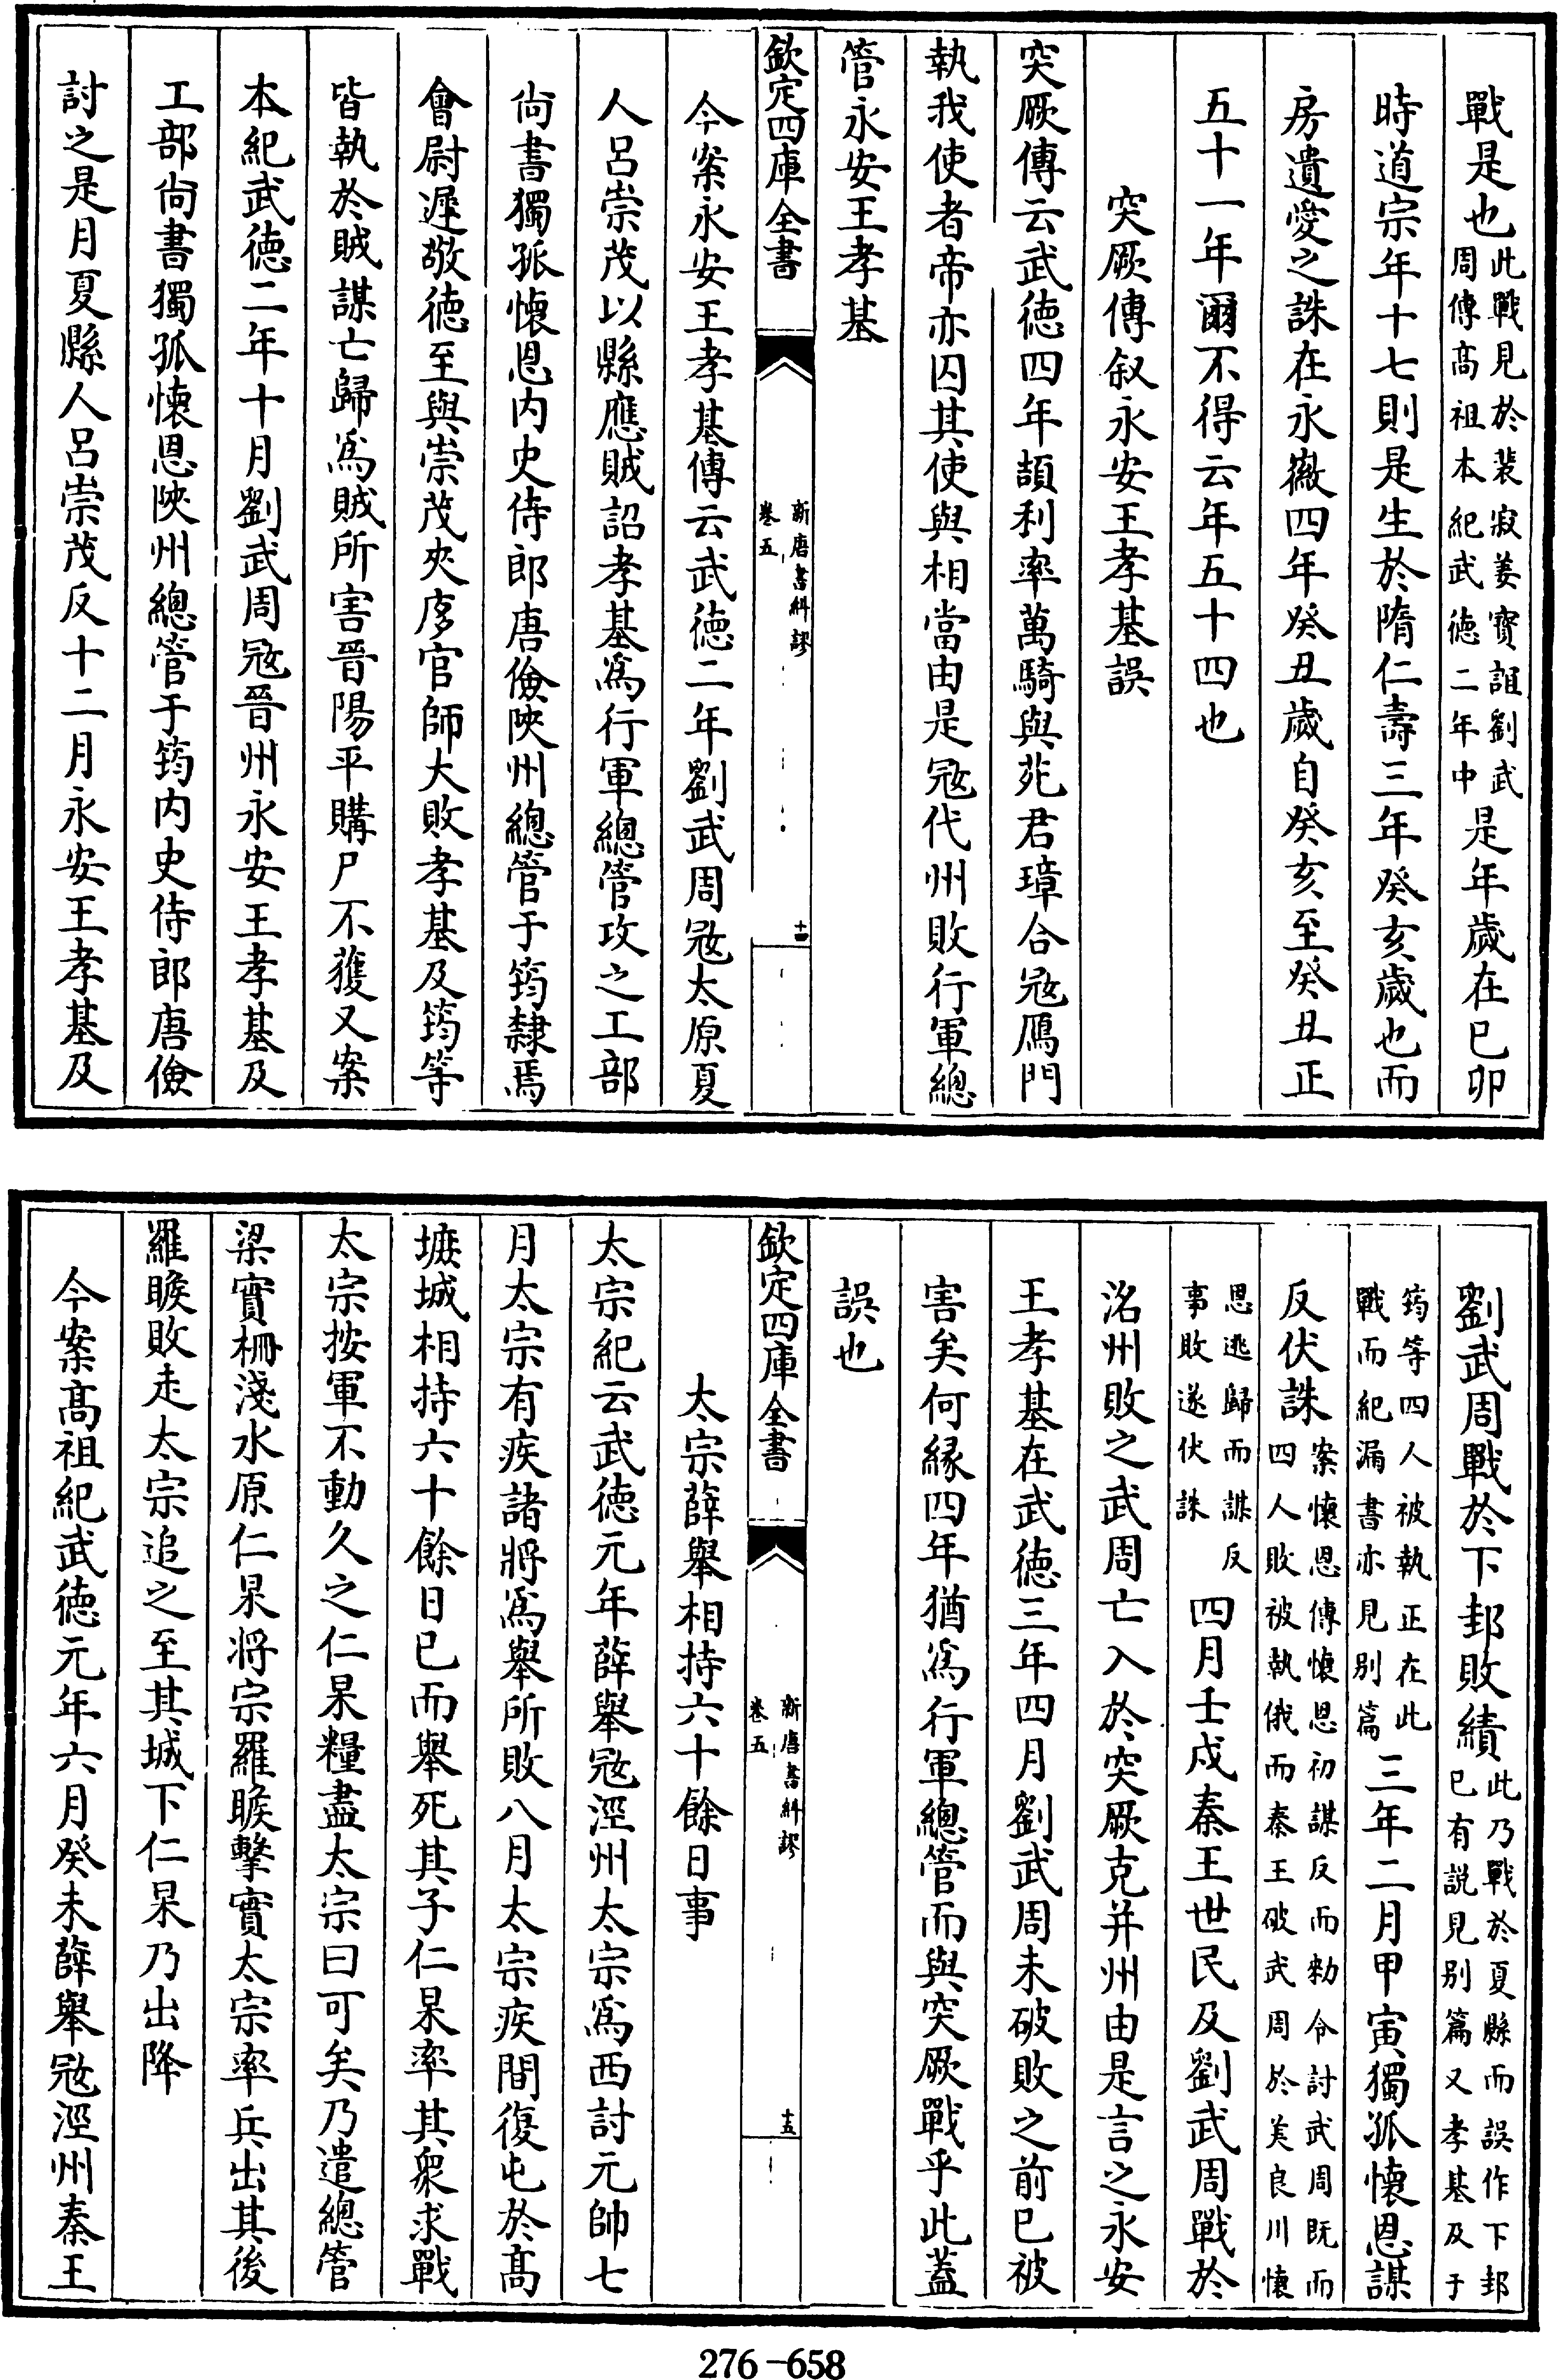 戰是也此戰見於裴寂姜寶誼劉武周傳髙祖本紀武徳二年中是年歲在已卯
時道宗年十七則是生於隋仁壽三年癸亥歲也而
房遺愛之誅在永徽四年癸丑歲自癸亥至癸丑正
五十一年爾不得云年五十四也
突厥傳叙永安王孝基誤
突厥傳云武徳四年頡利率萬騎與苑君璋合㓂鴈門
執我使者帝亦囚其使與相當由是㓂代州敗行軍總
管永安王孝基
欽定四庫全書
新唐書糾謬
卷五
十四
今案永安王孝基傳云武徳二年劉武周㓂太原夏
人呂崇茂以縣應賊詔孝基為行軍總管攻之工部
尚書獨孤懷恩内史侍郎唐儉陜州總管于筠隸焉
會尉遲敬徳至與崇茂夾攻官師大敗孝基及筠等
皆執於賊謀亡歸為賊所害晉陽平購尸不獲又案
本紀武徳二年十月劉武周㓂晉州永安王孝基及
工部尚書獨孤懷恩陜州總管于筠内史侍郎唐儉
討之是月夏縣人呂崇茂反十二月永安王孝基及
劉武周戰於下邽敗績此乃戰於夏縣而誤作下邽已有説見别篇又孝基及于
筠等四人被執正在此戰而紀漏書亦見别篇三年二月甲寅獨孤懷恩謀
反伏誅案懷恩傳懷恩初謀反而勑令討武周既而四人敗被執俄而秦王破武周於美良川懷
恩逃歸而謀反事敗遂伏誅四月壬戍秦王世民及劉武周戰於
洺州敗之武周亡入於突厥克并州由是言之永安
王孝基在武徳三年四月劉武周未破敗之前已被
害矣何縁四年猶為行軍總管而與突厥戰乎此葢
誤也
欽定四庫全書
新唐書糾謬
卷五
十五
太宗薛舉相持六十餘日事
太宗紀云武徳元年薛舉㓂涇州太宗為西討元帥七
月太宗有疾諸將為舉所敗八月太宗疾間復屯於髙
墌城相持六十餘日已而舉死其子仁杲率其衆求戰
太宗按軍不動久之仁杲糧盡太宗曰可矣乃遣總管
梁實柵淺水原仁杲将宗羅睺擊實太宗率兵出其後
羅睺敗走太宗追之至其城下仁杲乃出降
今案髙祖紀武徳元年六月癸未薛舉㓂涇州秦王
276-658